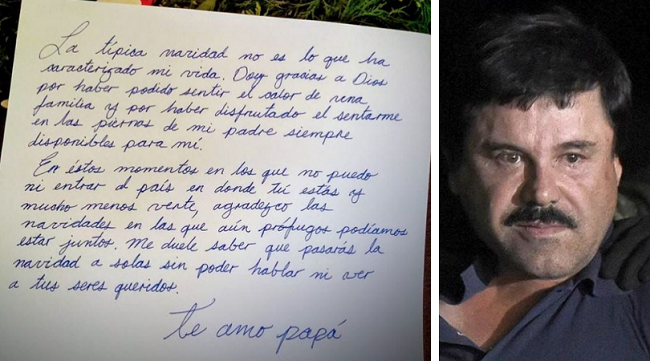 La típica navidad no es lo que ha
caracterizado mi vida. Doy gracias a Dios
por haber podido sentir el calor de una
familia y por haber disfrutado el sentarme
en las piernas de mi padre siempre
disponibles para mí.
En éstos momentos en los que no puedo
ni entrar al país en donde tú estás y
mucho menos verte, agradezco las
navidades en las que aún prófugos podíamos
estar juntos. Me duele saber que pasarás la
navidad a solas sin poder hablar ni ver
a tus seres queridos.
Te amo papá